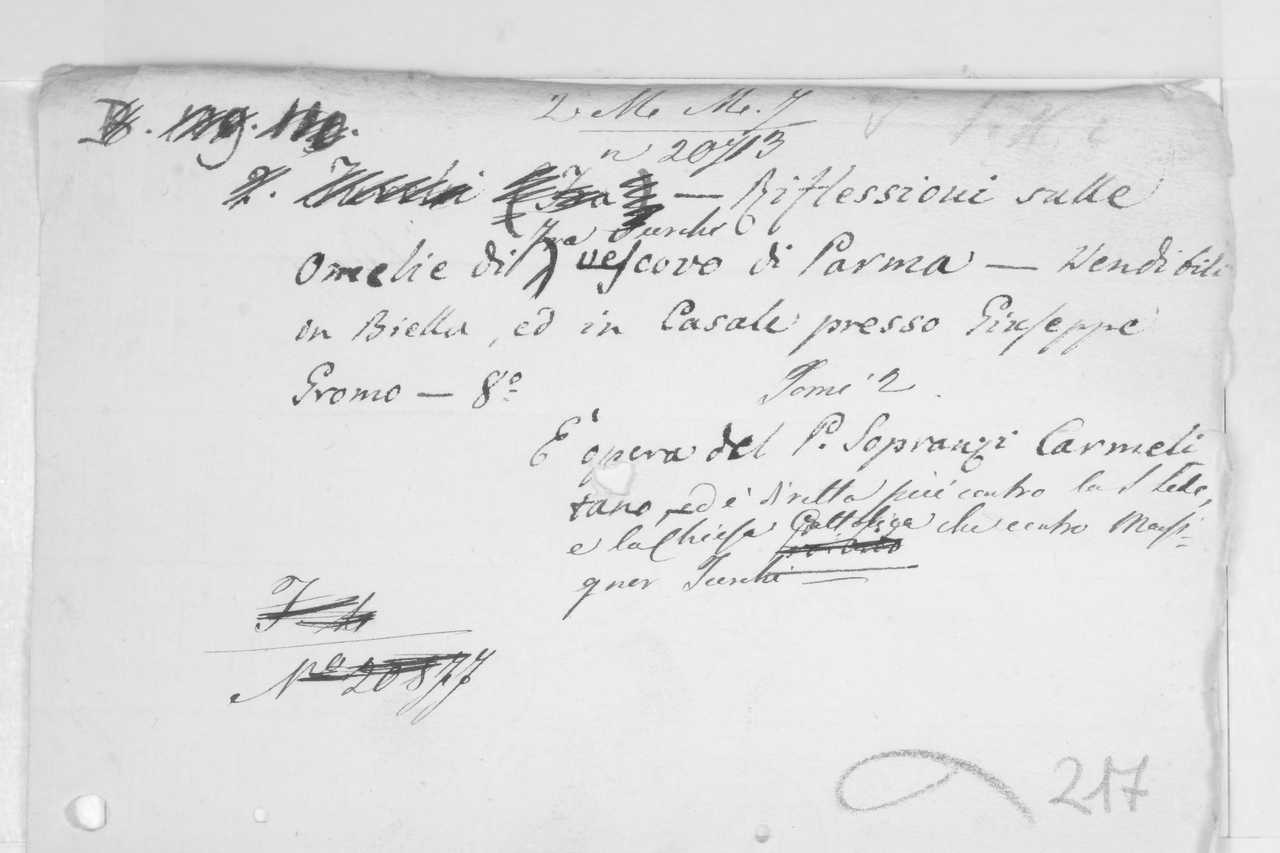 2. M. M. 7
n 20713
— Riflessioni sulle
Omelie di Fra Turchi vescovo di Parma — Vendibili
in Biella, ed in Casale presso Giuseppe
Gromo — 8º Tomi 2.
E' opera del P. Sopranzi Carmeli
tano, ed è diretta più contro la S. Sede,
e la Chiesa Cattolica che contro Monsi=
gner Turchi —
Nº 20877
217